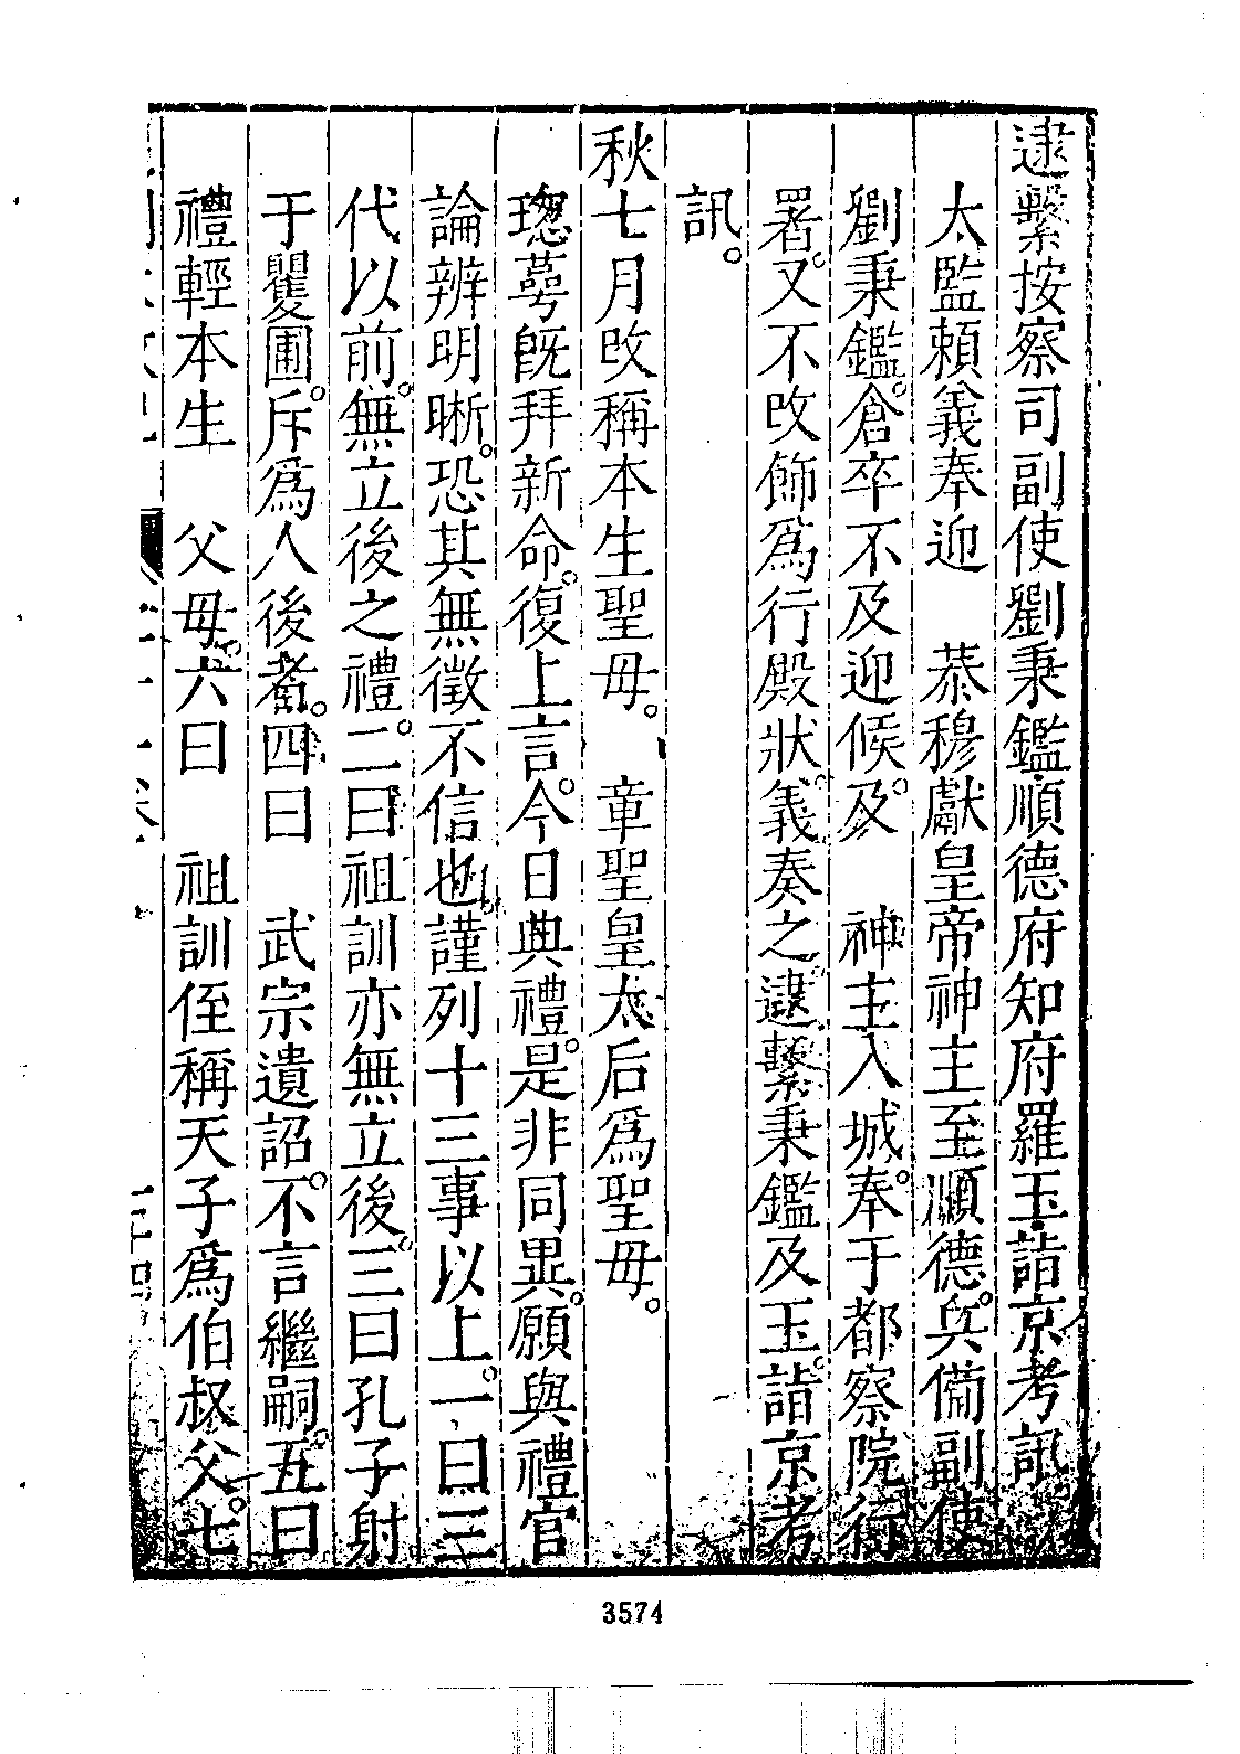 逮繫按察司副使劉秉鑑順德府知府羅玉詣京考訊
太監賴義奉迎　恭穆獻皇帝神主至順德。兵備副使
劉秉鑑。倉卒不及迎候。及　神主入城。奉于都察院行
署。又不改飾爲行殿狀。義奏之。逮繫秉鑑及玉。詣京考
訊。
秋七月改稱本生聖母。　章聖皇太后爲聖母。
璁萼旣拜新命。復上言。今日典禮。是非同異。願與禮官
論辨明晰。恐其無徵不信也。謹列十三事以上。一曰三
代以前。無立後之禮。二曰祖訓亦無立後。三曰孔子射
于矍圃。斥爲人後者。四曰　武宗遺詔。不言繼嗣。五曰
禮輕本生　父母。六曰　祖訓侄稱天子爲伯叔父。七
3574